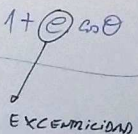 1 + e cos θ
EXCENTRICIDAD